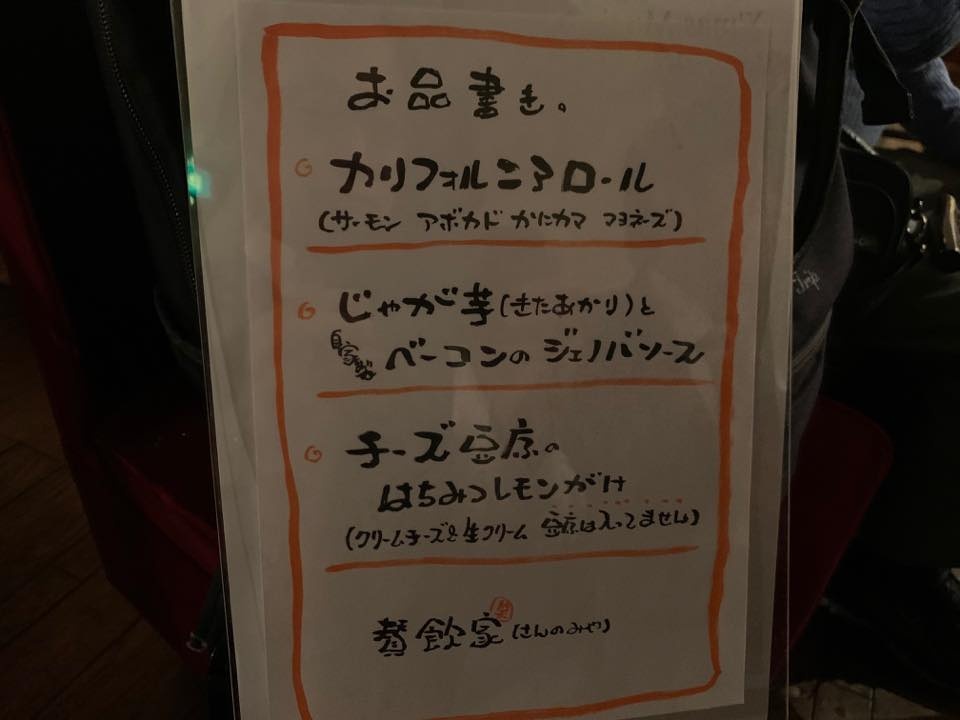 お品書き。
カリフォルニアロール
(サーモン アボカド かにカマ マヨネーズ)
じゃが芋(きたあかり)と
自家製 ベーコンの ジェノバソース
チーズ豆腐の
はちみつレモンがけ
(クリームチーズと生クリーム 豆腐は入ってません)
賛飲家(さんのみや)